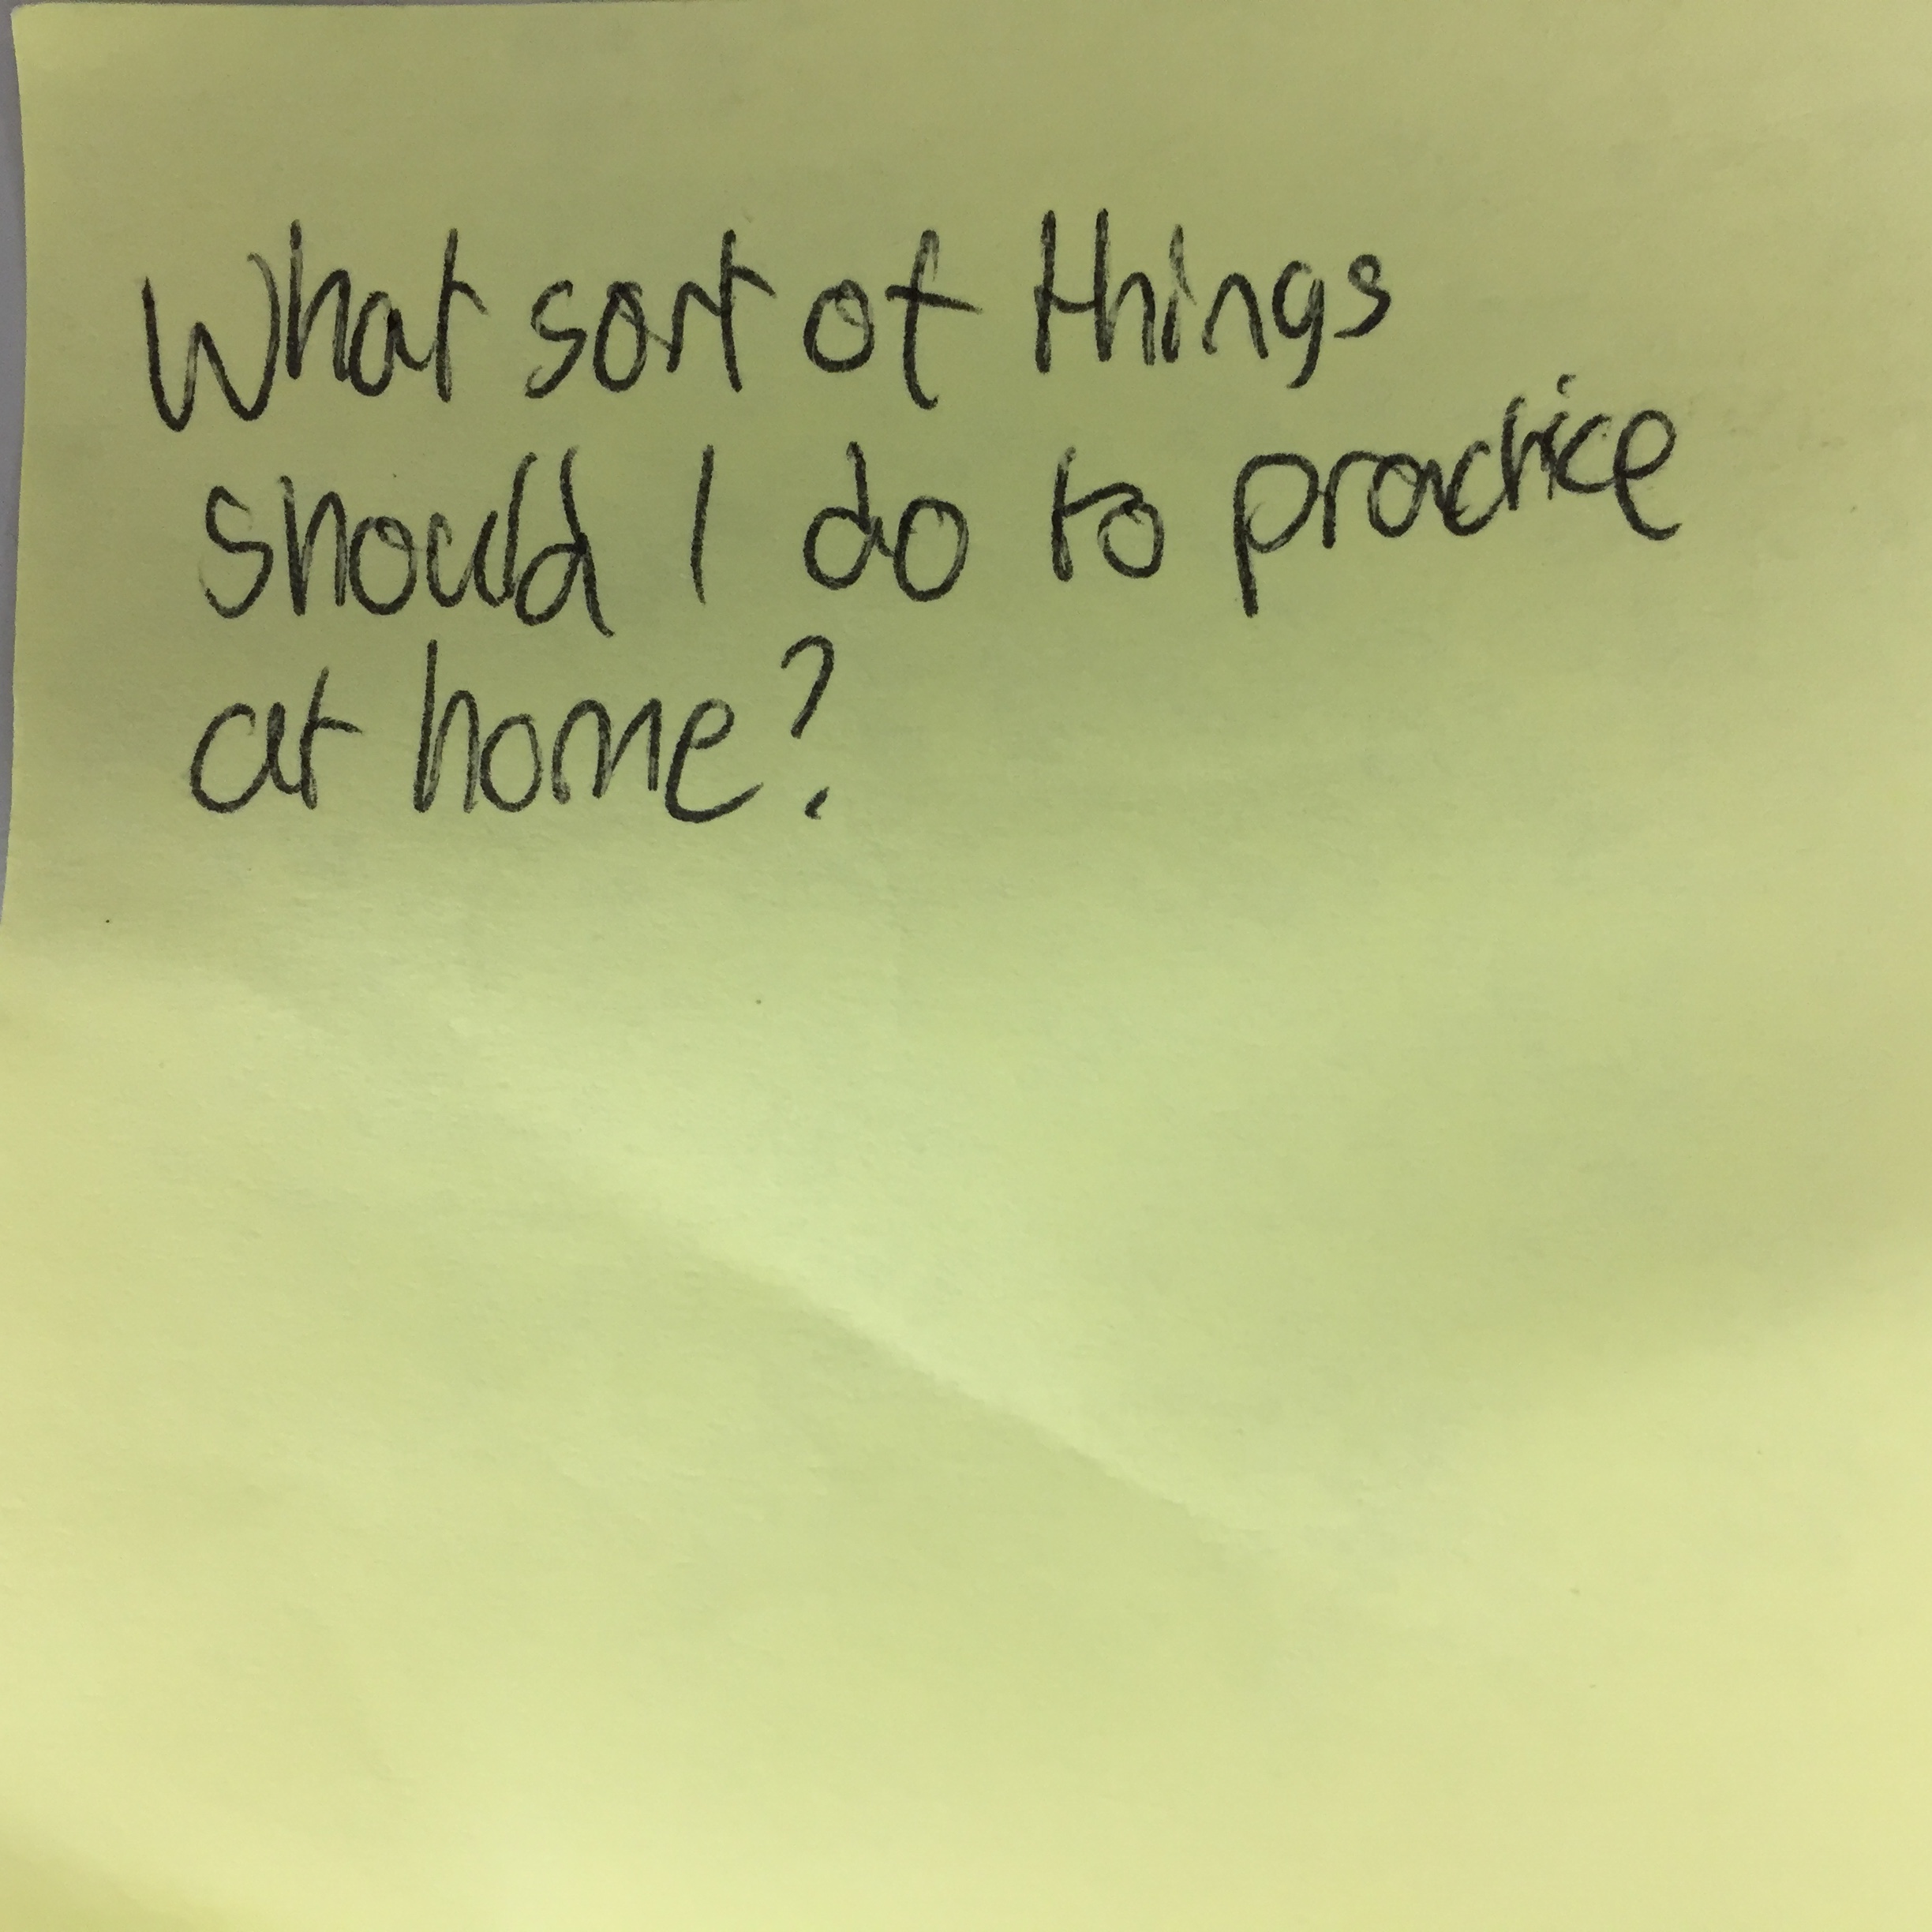 What sort of things
should I do to practice
at home?